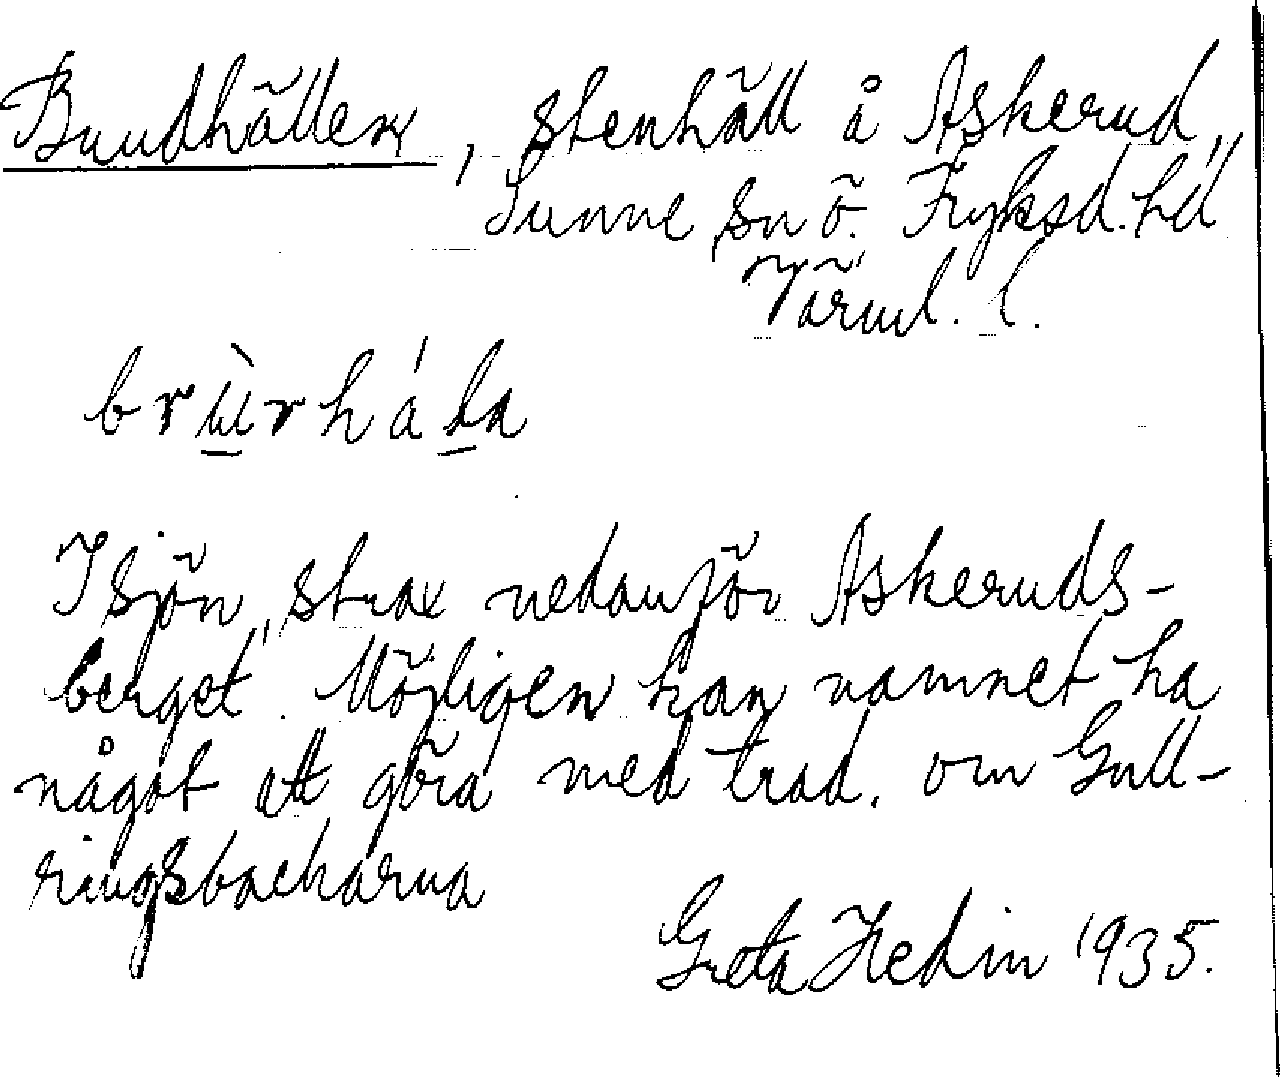 Bruudhällen, stenhäll å Askerud,
Sunne sn Ö. Fryksd. hd
Värml. l.
brùrhála
I sjön, strax nedanför Askeruds-
berget. Möjligen kan namnet ha
något att göra med trad. om Gull-
ringsbackarna
Greta Hedin 1935.